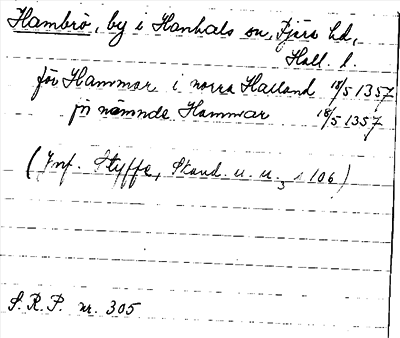 Hambrö, by i Hanhals sn, Fjäre hd,
Hall. l.
för Hammar i norra Halland 18/5 1357
jn nämnde Hammar 18/5 1357
(Jnf. Styffe, Skand. u. u.3 s 106)
S. R. P. nr. 305